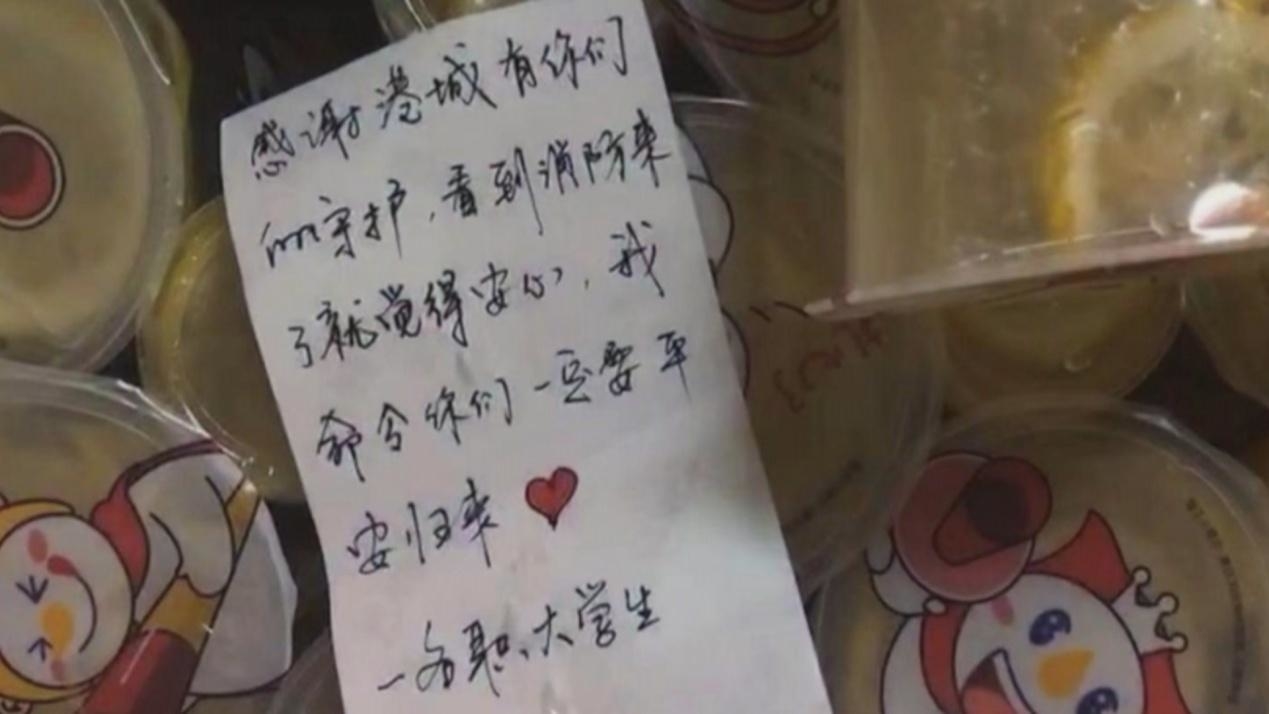 感谢港城有你们
的守护，看到消防来
了就觉得安心，我
命令你们一定要平
安归来
一名职大学生